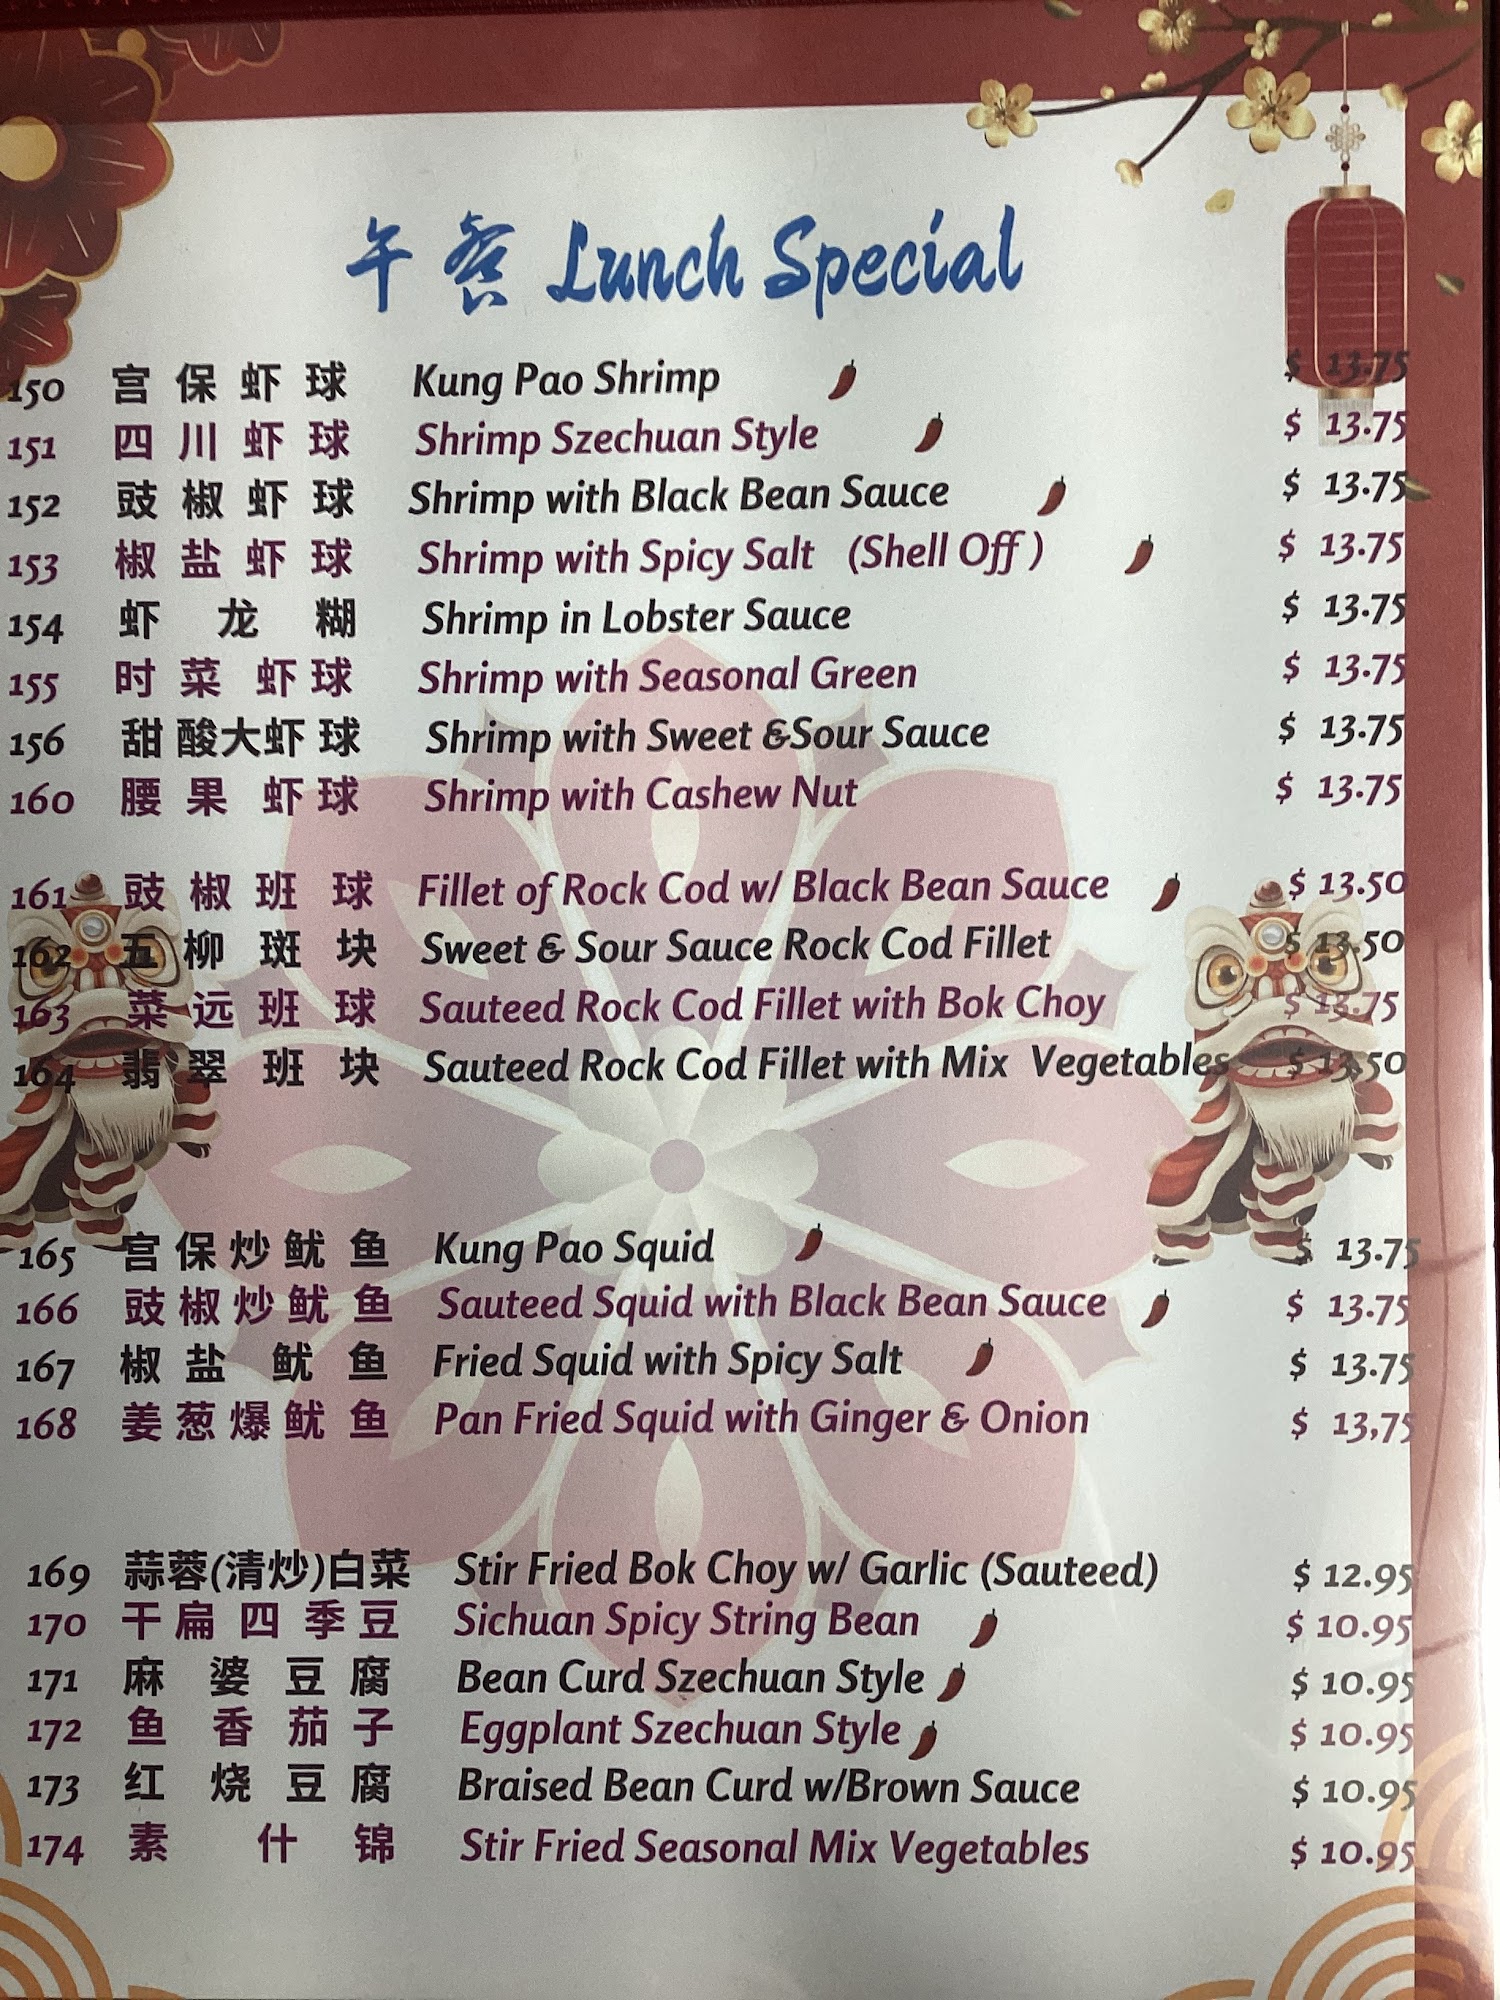 午餐 Lunch Special
150 宫保虾球 Kung Pao Shrimp $ 13.75
151 四川虾球 Shrimp Szechuan Style $ 13.75
152 豉椒虾球 Shrimp with Black Bean Sauce $ 13.75
153 椒盐虾球 Shrimp with Spicy Salt (Shell Off ) $ 13.75
154 虾龙糊 Shrimp in Lobster Sauce $ 13.75
155 时菜虾球 Shrimp with Seasonal Green $ 13.75
156 甜酸大虾球 Shrimp with Sweet &Sour Sauce $ 13.75
160 腰果虾球 Shrimp with Cashew Nut $ 13.75
161 豉椒班球 Fillet of Rock Cod w/ Black Bean Sauce $ 13.50
162 五柳斑块 Sweet & Sour Sauce Rock Cod Fillet $ 13.50
163 菜远班球 Sauteed Rock Cod Fillet with Bok Choy $ 13.75
164 翡翠班块 Sauteed Rock Cod Fillet with Mix Vegetables $ 13.50
165 宫保炒鱿鱼 Kung Pao Squid $ 13.75
166 豉椒炒鱿鱼 Sauteed Squid with Black Bean Sauce $ 13.75
167 椒盐鱿鱼 Fried Squid with Spicy Salt $ 13.75
168 姜葱爆鱿鱼 Pan Fried Squid with Ginger & Onion $ 13,75
169 蒜蓉(清炒)白菜 Stir Fried Bok Choy w/ Garlic (Sauteed) $ 12.95
170 干扁四季豆 Sichuan Spicy String Bean $ 10.95
171 麻婆豆腐 Bean Curd Szechuan Style $ 10.95
172 鱼香茄子 Eggplant Szechuan Style $ 10.95
173 红烧豆腐 Braised Bean Curd w/Brown Sauce $ 10.95
174 素什锦 Stir Fried Seasonal Mix Vegetables $ 10.95